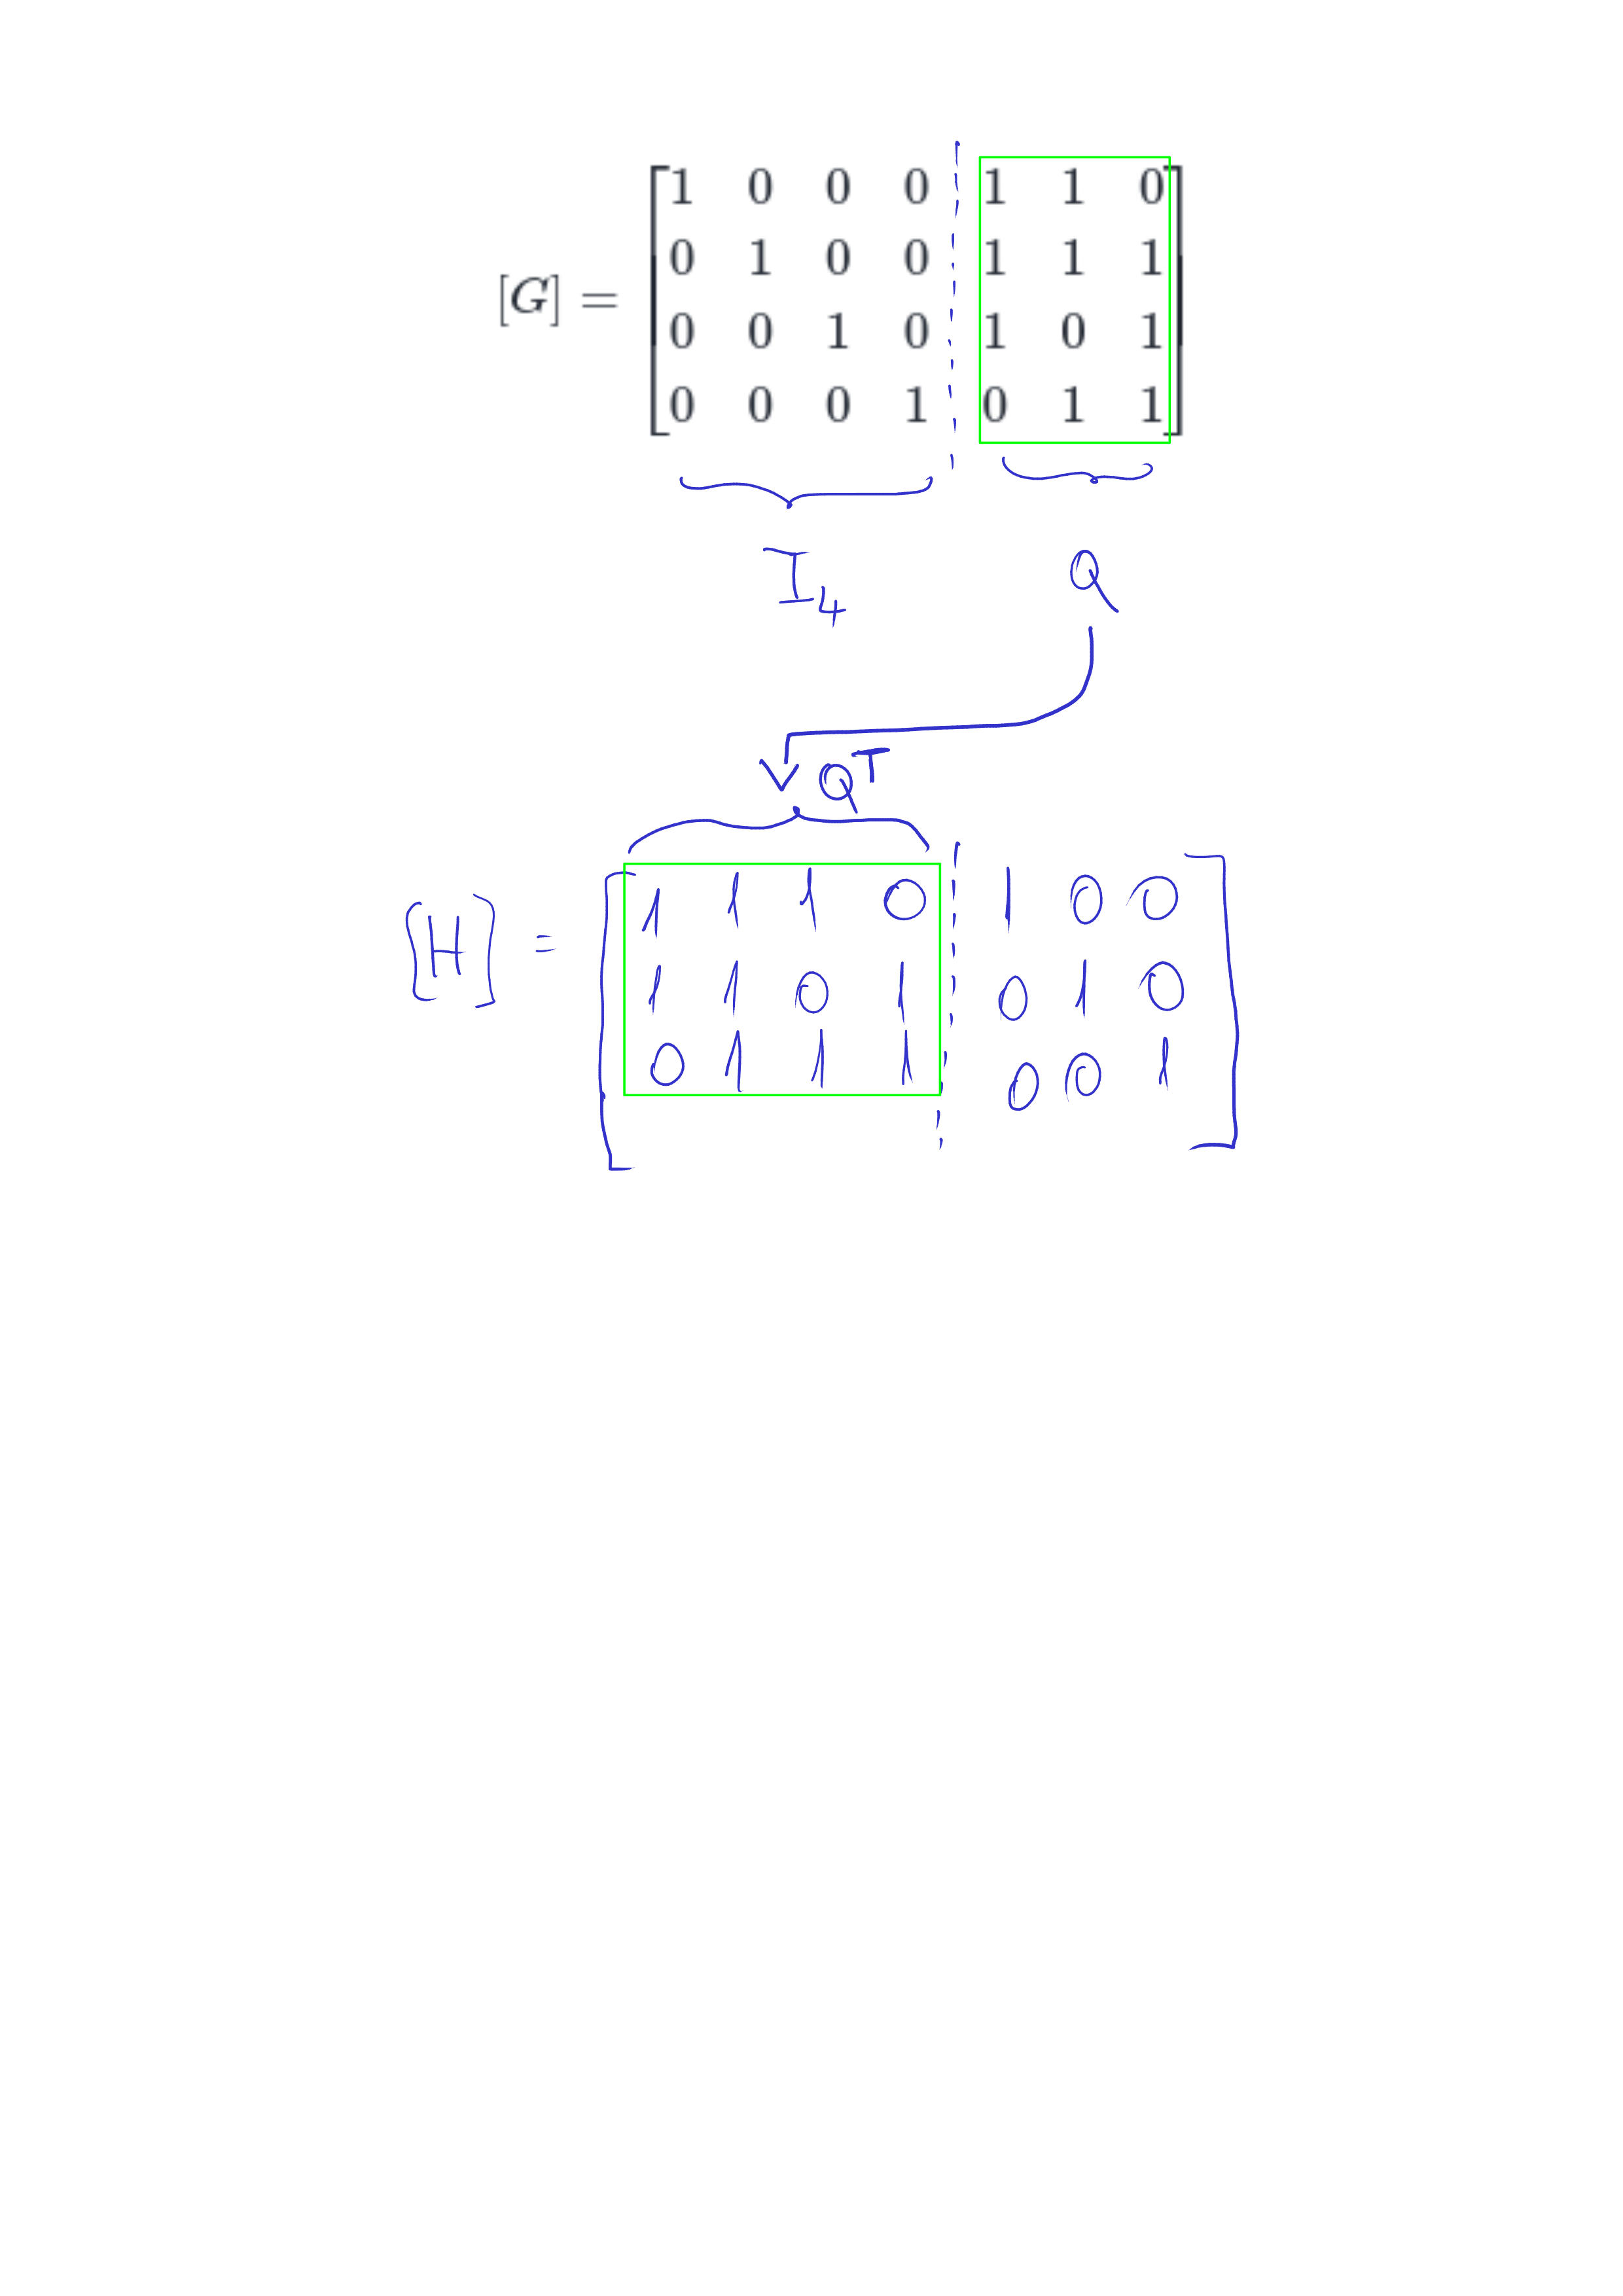 [G] =
1 0 0 0 1 1 0
0 1 0 0 1 1 1
0 0 1 0 1 0 1
0 0 0 1 0 1 1
I₄ Q
Qᵀ
[H] =
1 1 1 0 1 0 0
1 1 0 1 0 1 0
0 1 1 1 0 0 1